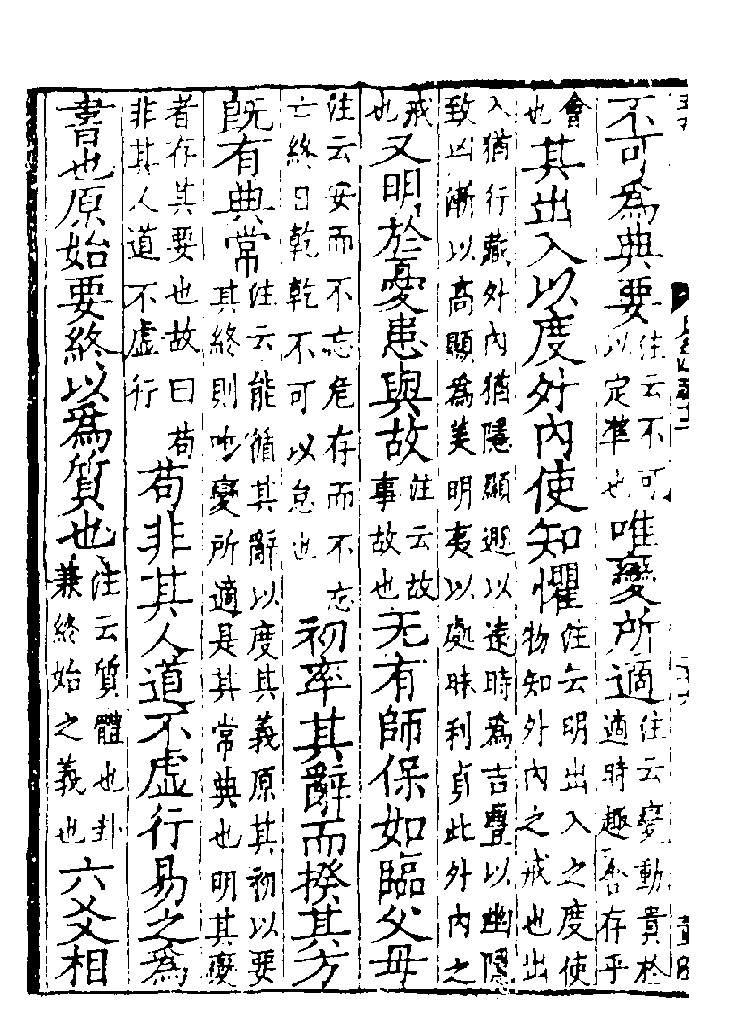 不可為典要注云不可以定準也唯變所適注云變動貴於適時趣舍存乎
會也其出入以度外內使知懼注云明出入之度使物知外內之戒也出
入猶行藏外內猶隱顯遯以遠時為吉豐以幽隱致凶漸以高顯為美明夷以處昧利貞此外內之
戒也又明於憂患與故注云故事故也无有師保如臨父母
注云安而不忘危存而不忘亡終日乾乾不可以怠也初率其辭而揆其方
既有典常注云能循其辭以度其義原其初以要其終則唯變所適是其常典也明其變
者存其要也故曰苟非其人道不虛行苟非其人道不虛行易之為
書也原始要終以為質也注云質體也卦兼終始之義也六爻相